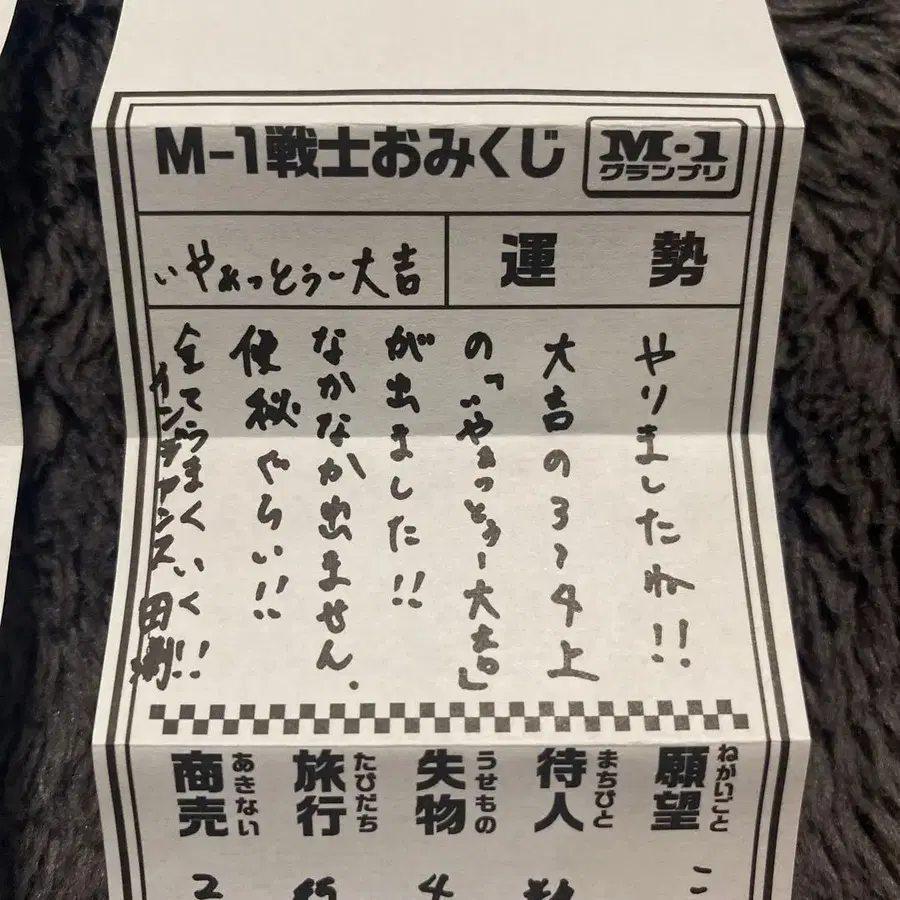 M-1戦士おみくじ
M-1
グランプリ
運勢
いやぁっとぅー大吉
やりましたね!!
大吉の3〜4上
の「いやぁっとぅー大吉」
が出ました!!
なかなか出ません.
便秘やらい!!
全てうまくいく!!
田
願望
ねがいごと
待人
まちびと
失物
うせもの
旅行
たびだち
商売
あきない
こ
4
2